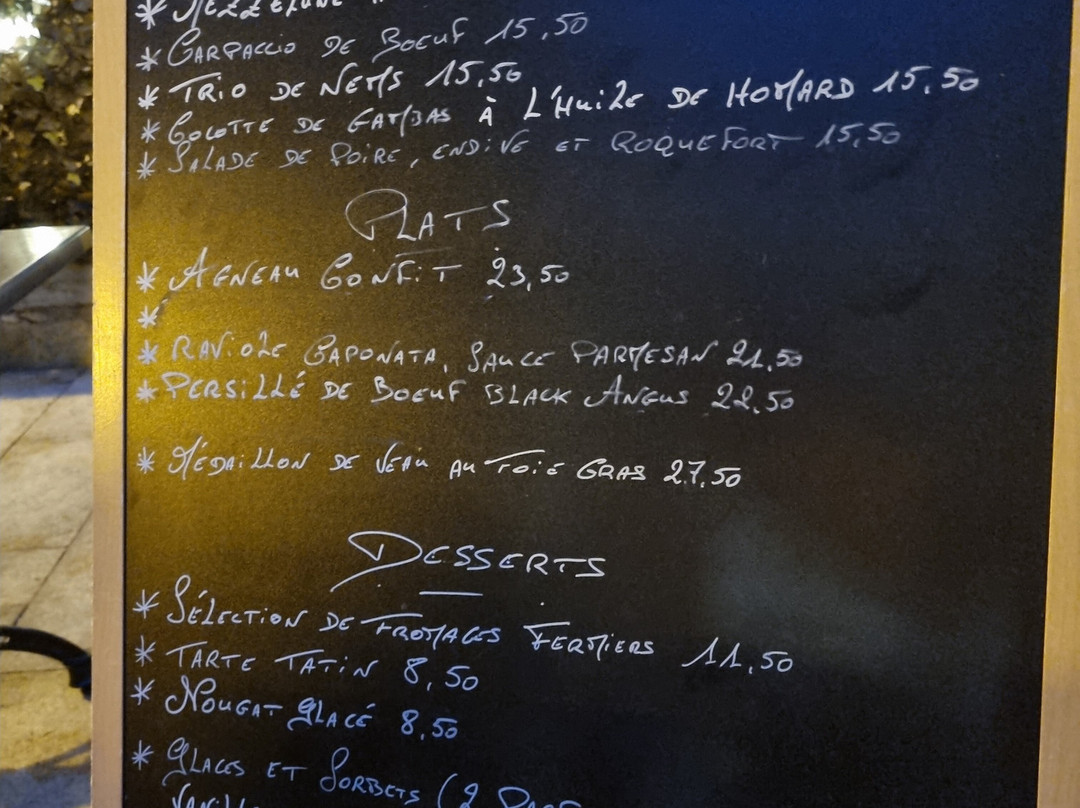 * MEZZELUNE
* CARPACCIO DE BOEUF 15,50
* TRIO DE NEMS 15,50
* COCOTTE DE GAMBAS À L'HUILE DE HOMARD 15,50
* SALADE DE POIRE, ENDIVE ET ROQUEFORT 15,50
PLATS
* AGNEAU CONFIT 23,50
*
* RAVIOLE CAPONATA, SAUCE PARMESAN 21,50
* PERSILLÉ DE BOEUF BLACK ANGUS 22,50
* MÉDAILLON DE VEAU AU FOIE GRAS 27,50
DESSERTS
* SÉLECTION DE FROMAGES FERMIERS 11,50
* TARTE TATIN 8,50
* NOUGAT GLACÉ 8,50
* GLACES ET SORBETS (2